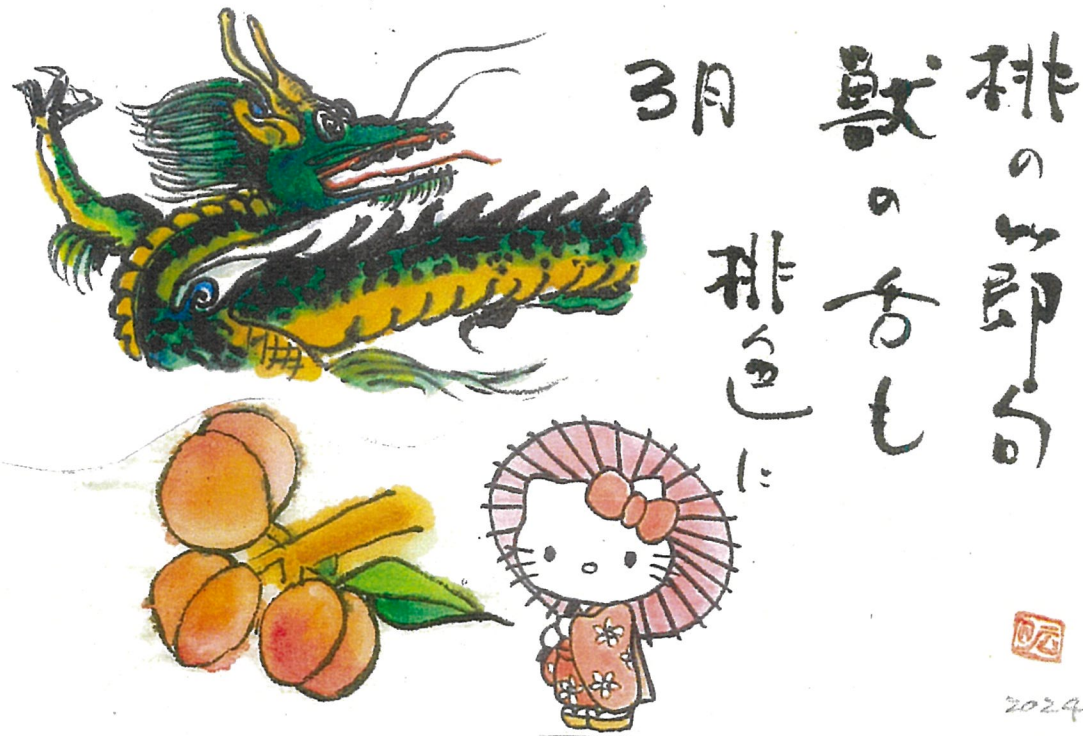 桃の節句
獣の舌も
桃色に
3月
2024